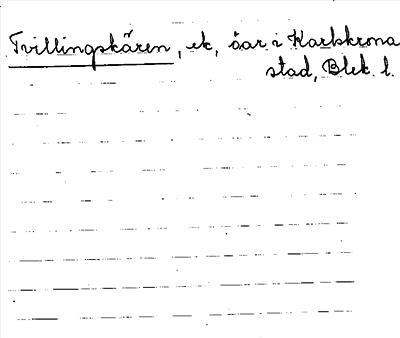 Tvillingskären, ek, öar i Karlskrona
stad, Blek. l.